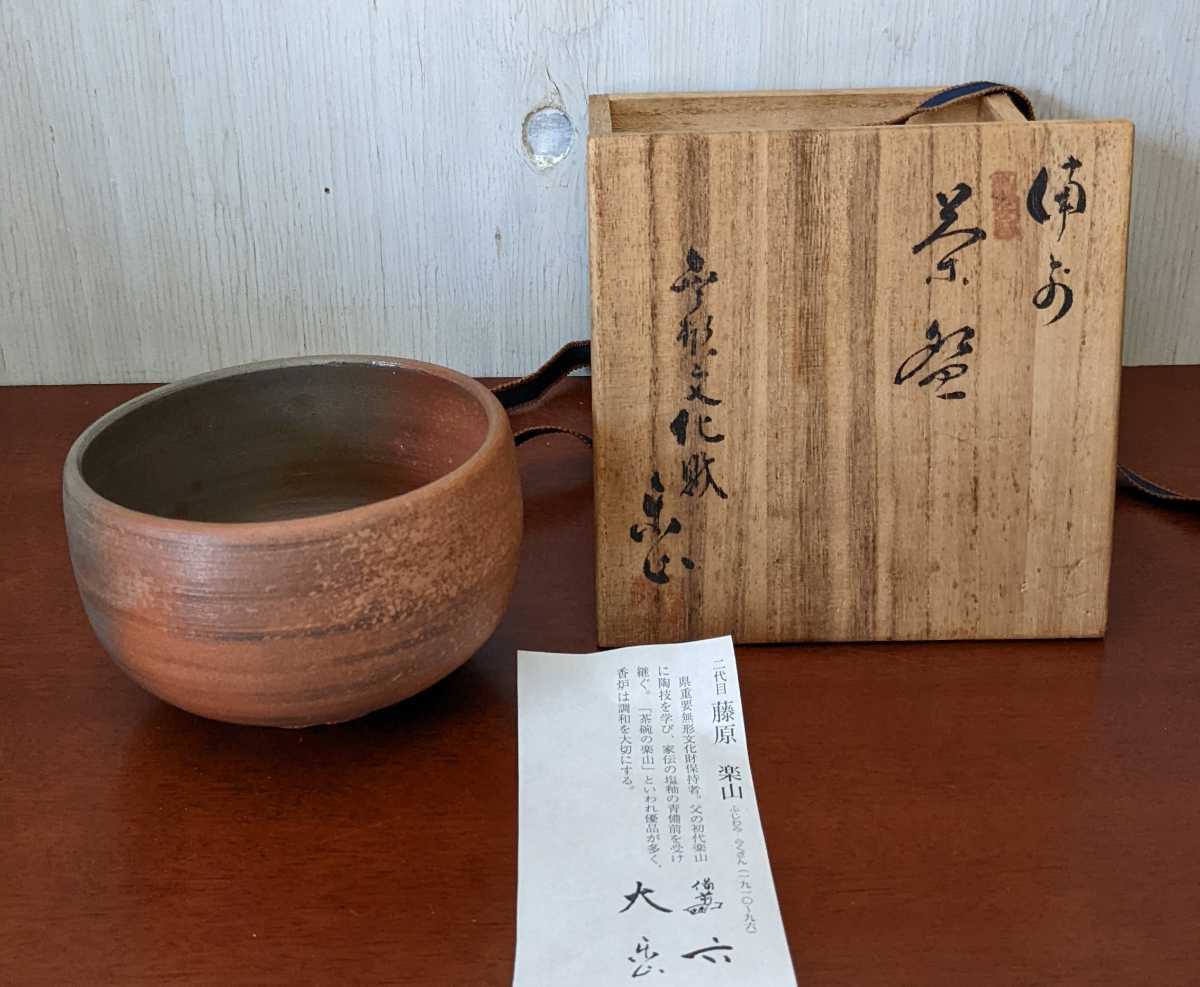 備前
茶盌
無形文化財
楽山
二代目 藤原 楽山 ふじわら らくざん (一九一〇〜九六)
県重要無形文化財保持者。父の初代楽山
に陶技を学び、家伝の塩釉の青備前を受け
継ぐ。「茶碗の楽山」といわれ優品が多く、
香炉は調和を大切にする。
六
大
楽山